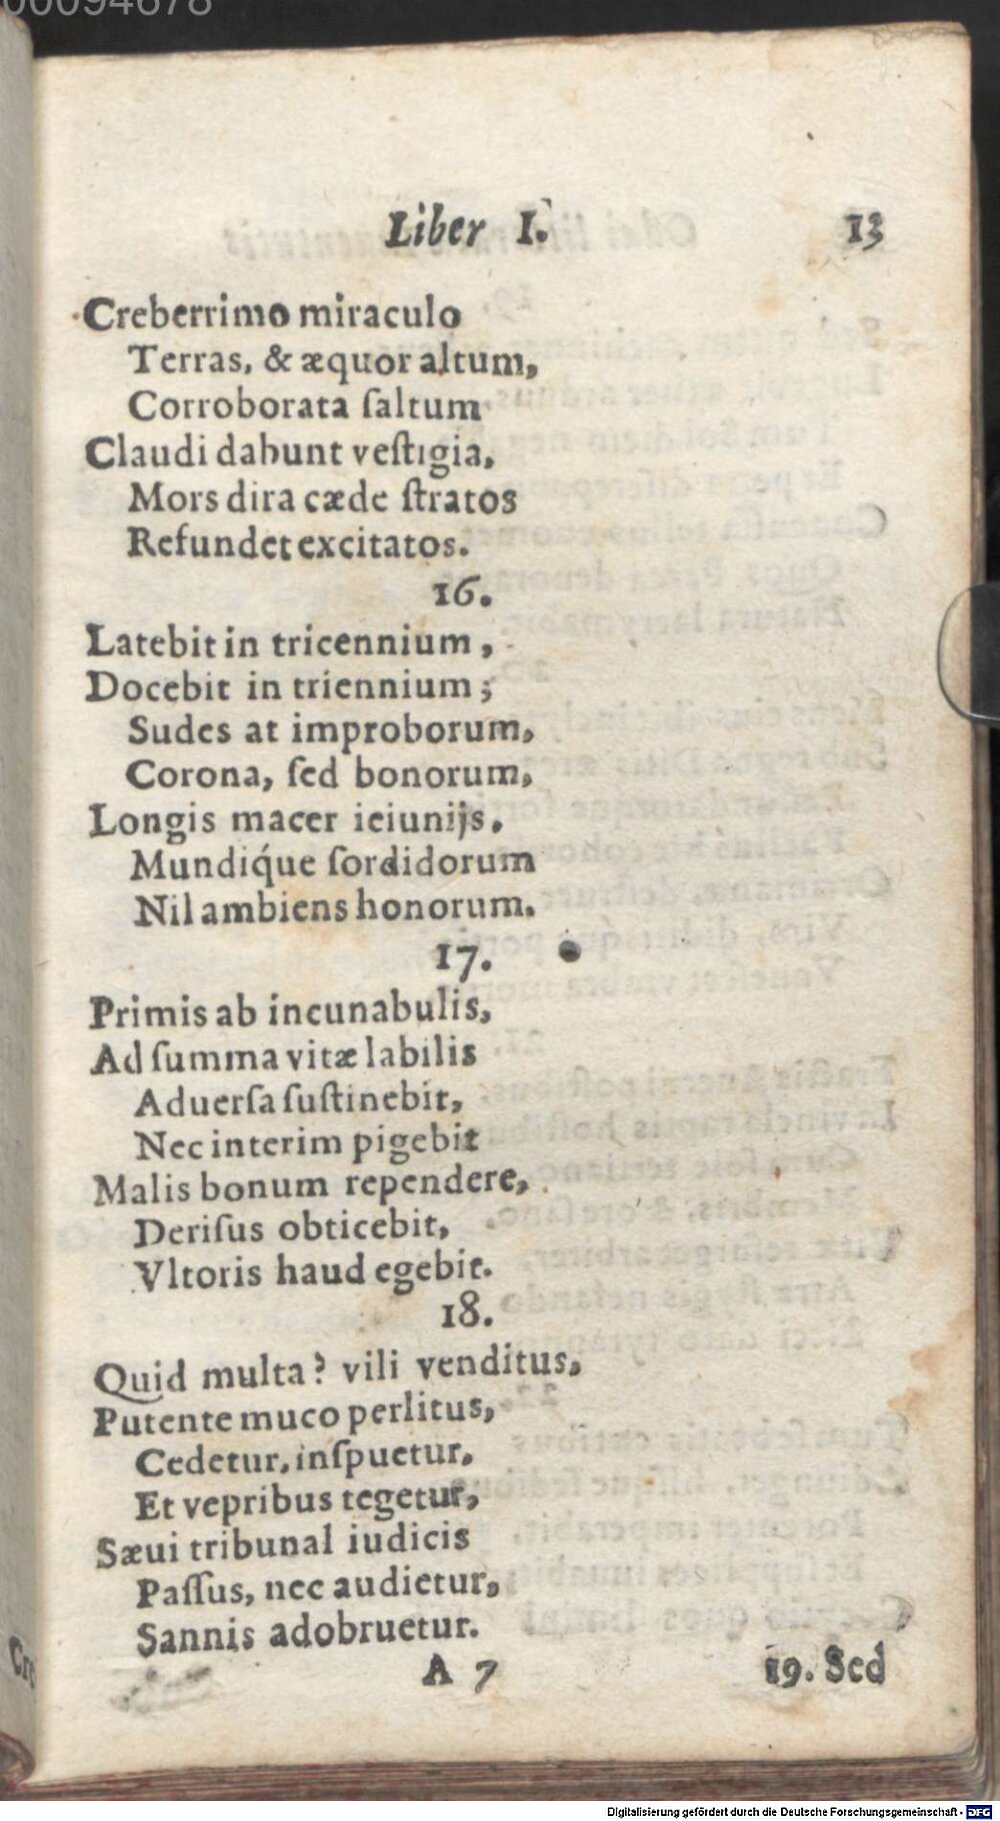 00094678
Liber I. 13
Creberrimo miraculo
Terras, & æquor altum,
Corroborata ſaltum
Claudi dabunt veſtigia,
Mors dira cæde ſtratos
Refundet excitatos.
16.
Latebit in tricennium,
Docebit in triennium;
Sudes at improborum,
Corona, ſed bonorum,
Longis macer ieiunijs,
Mundiq́ue ſordidorum
Nil ambiens honorum.
17.
Primis ab incunabulis,
Ad ſumma vitæ labilis
Aduerſa ſuſtinebit,
Nec interim pigebit
Malis bonum rependere,
Deriſus obticebit,
Vltoris haud egebit.
18.
Quid multa? vili venditus,
Putente muco perlitus,
Cedetur, inſpuetur,
Et vepribus tegetur,
Sæui tribunal iudicis
Paſſus, nec audietur,
Sannis adobruetur.
A 7 19. Sed
Digitalisierung gefördert durch die Deutsche Forschungsgemeinschaft - DFG